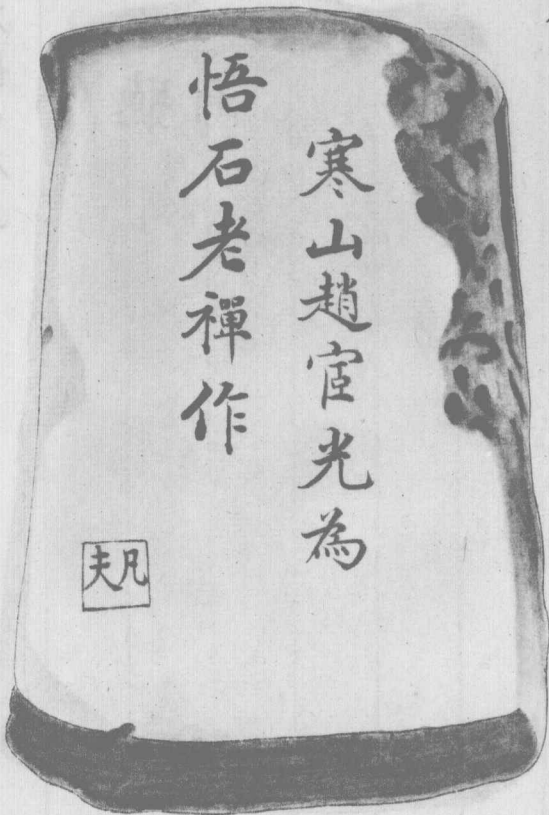 寒山趙宧光為
悟石老禪作
凡夫